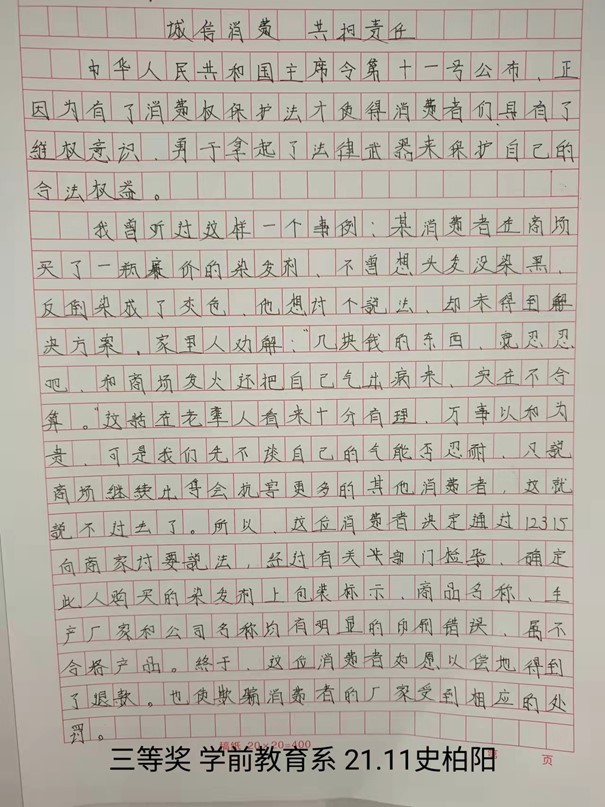 诚信消费 共担责任
中华人民共和国主席令第十一号公布，正
因为有了消费权保护法才使得消费者们具有了
维权意识，勇于拿起了法律武器来保护自己的
合法权益。
我曾听过这样一个事例：某消费者在商场
买了一瓶廉价的染发剂，不曾想头发没染黑，
反倒染成了灰色，他想讨个说法，却未得到解
决方案。家里人劝解："几块钱的东西，就忍忍
吧，和商场发火还把自己气出病来，实在不合
算。"这话在老辈人看来十分有理，万事以和为
贵，可是我们先不谈自己的气能否忍耐，只说
商场继续出售会坑害更多的其他消费者，这就
说不过去了。所以，这位消费者决定通过12315
向商家讨要说法，经过有关部门检验，确定
此人购买的染发剂上包装标示，商品名称、生
产厂家和公司名称均有明显的印刷错误，属不
合格产品。终于，这位消费者如愿以偿地得到
了退款。也使欺骗消费者的厂家受到相应的处
罚。
稿纸 20×20=400
页
三等奖 学前教育系 21.11史柏阳